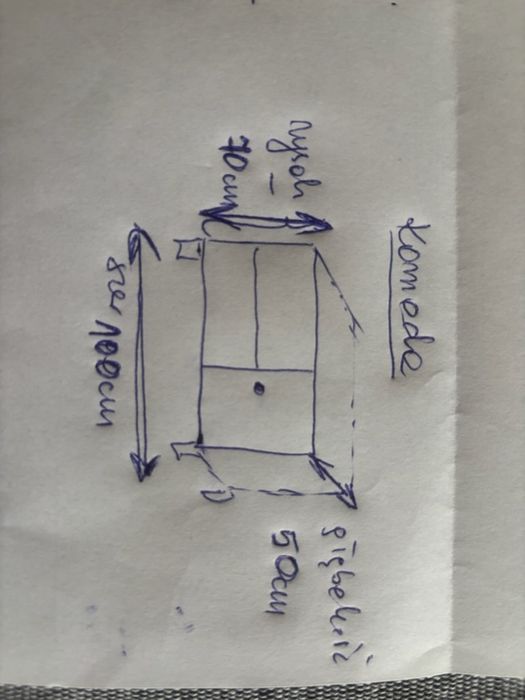 Komoda
wysok
70cm
szer 100cm
głębokość
50cm